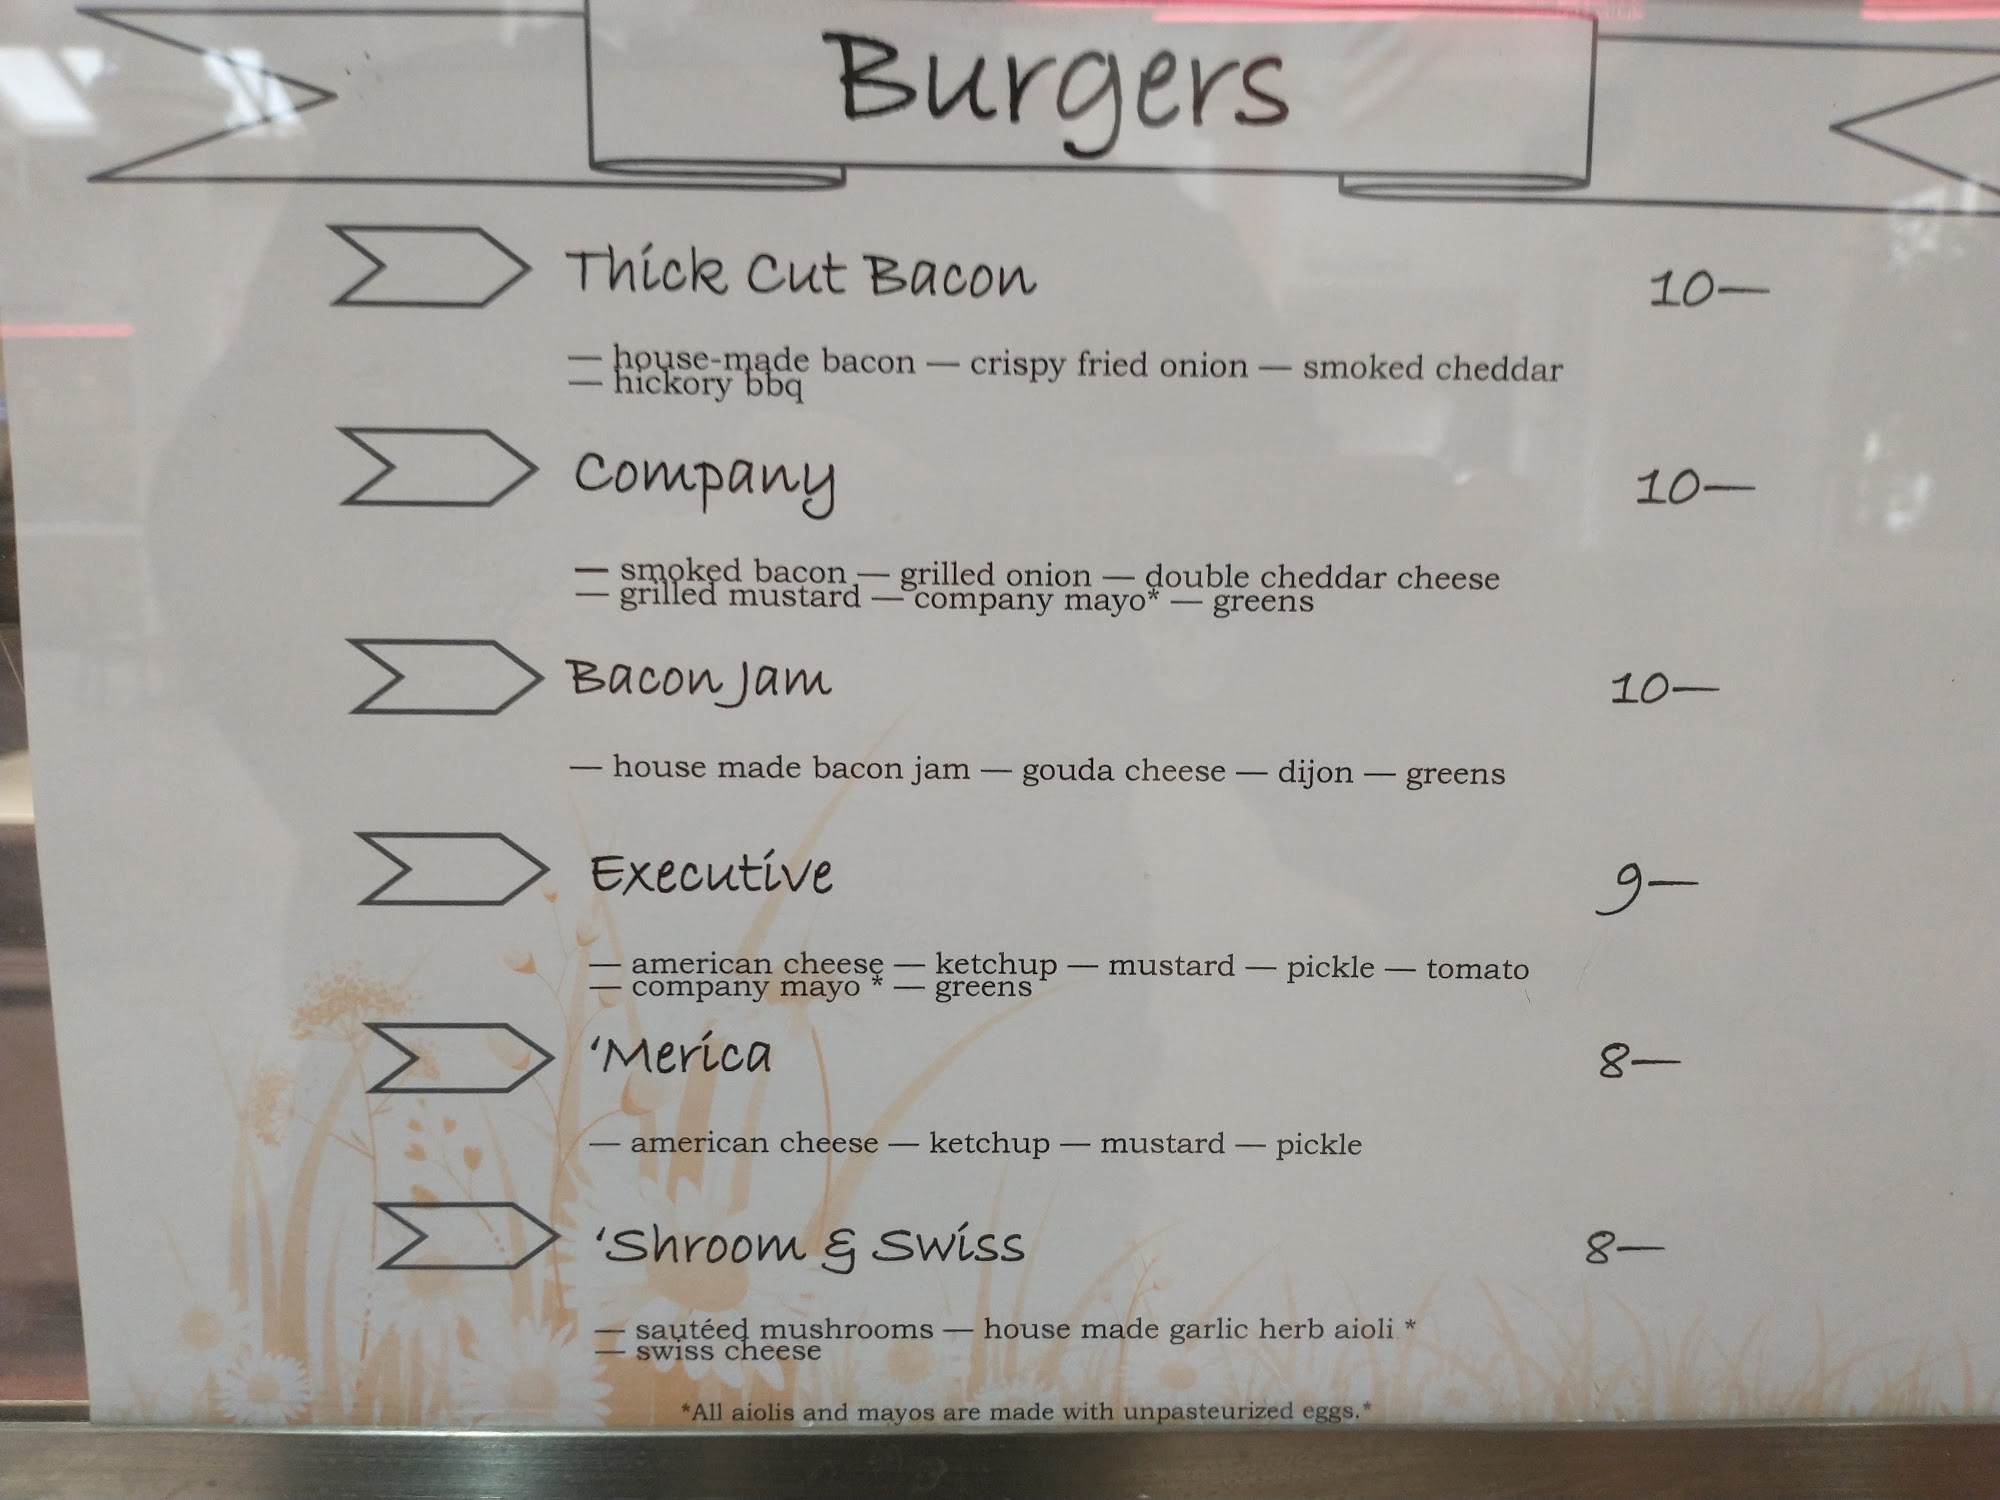 Burgers
Thick Cut Bacon 10—
— house-made bacon — crispy fried onion — smoked cheddar
— hickory bbq
Company 10—
— smoked bacon — grilled onion — double cheddar cheese
— grilled mustard — company mayo* — greens
Bacon Jam 10—
— house made bacon jam — gouda cheese — dijon — greens
Executive 9—
— american cheese — ketchup — mustard — pickle — tomato
— company mayo * — greens
‘Merica 8—
— american cheese — ketchup — mustard — pickle
‘Shroom & Swiss 8—
— sautéed mushrooms — house made garlic herb aioli *
— swiss cheese
*All aiolis and mayos are made with unpasteurized eggs.*